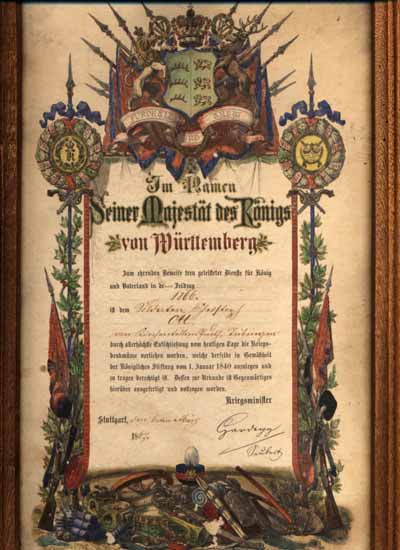 FURCHTLOS UND TREU
Im Namen
Seiner Majestät des Königs
von Württemberg
Zum ehrenden Beweise treu geleisteter Dienste für König
und Vaterland in de--- Feldzug
1866.
ist dem Soldaten
Ott
von
durch allerhöchste Entschließung vom heutigen Tage die Kriegs-
denkmünze verliehen worden, welche derselbe in Gemäßheit
der Königlichen Stiftung vom 1. Januar 1840 anzulegen und
zu tragen berechtigt ist. Dessen zur Urkunde ist Gegenwärtiges
hierüber ausgefertigt und vollzogen worden.
Kriegsminister
Stuttgart, den März
186
Hardegg
Seubert